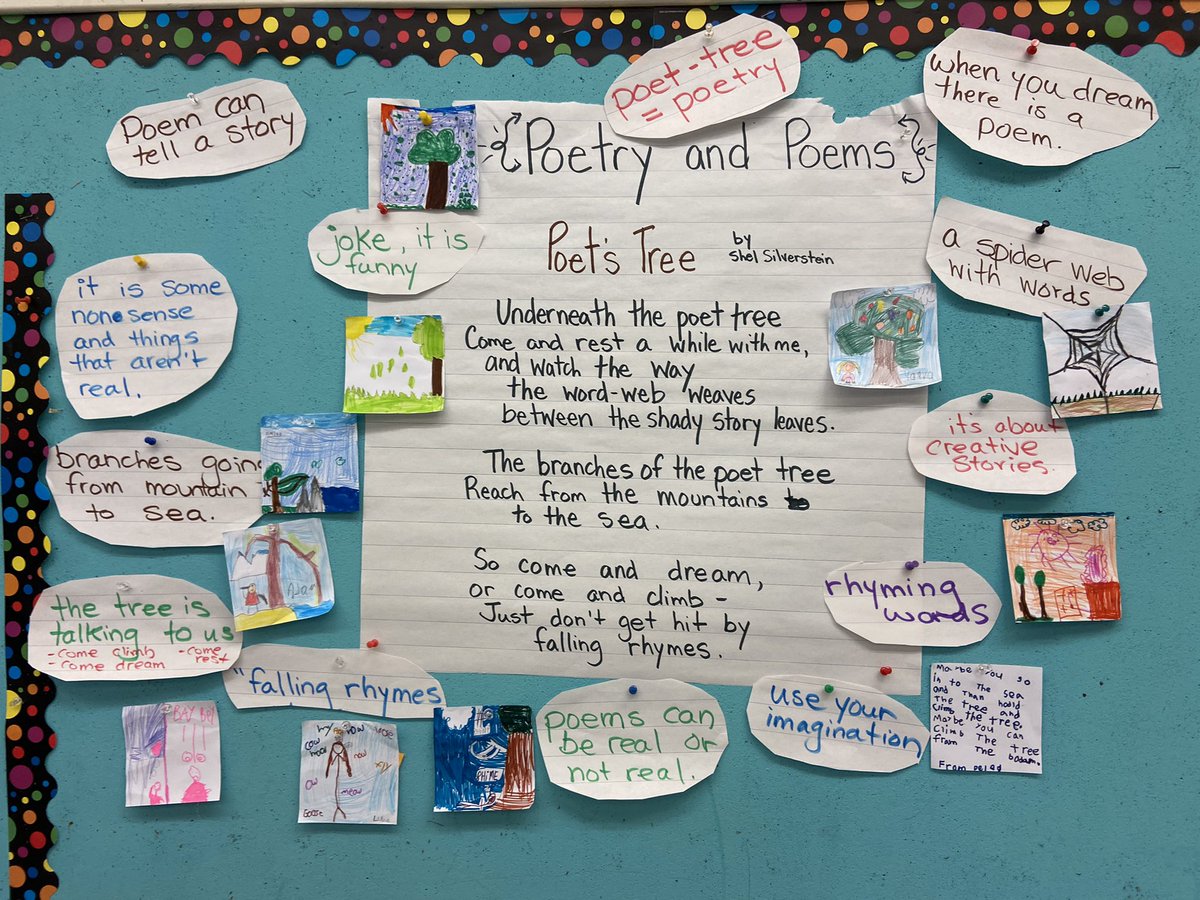 poet-tree
= poetry
Poem can
tell a story
when you dream
there is a
poem.
Poetry and Poems
joke, it is
funny
Poet's Tree
by
Shel Silverstein
a spider web
with words
it is some
nonesense
and things
that aren't
real.
Underneath the poet tree
Come and rest a while with me,
and watch the way
the word-web weaves
between the shady story leaves.
it's about
creative
stories.
branches going
from mountain
to sea.
The branches of the poet tree
Reach from the mountains
to the sea.
So come and dream,
or come and climb -
Just don't get hit by
falling rhymes.
rhyming
words
the tree is
talking to us
-come climb
-come dream
-come rest
"falling rhymes
poems can
be real or
not real.
use your
imagination
Maybe you
in to the sea
and than
the tree and
climb the tree.
Maybe you can
climb the tree
from the
From
cow
now
ow
meow
Goose
RHIME